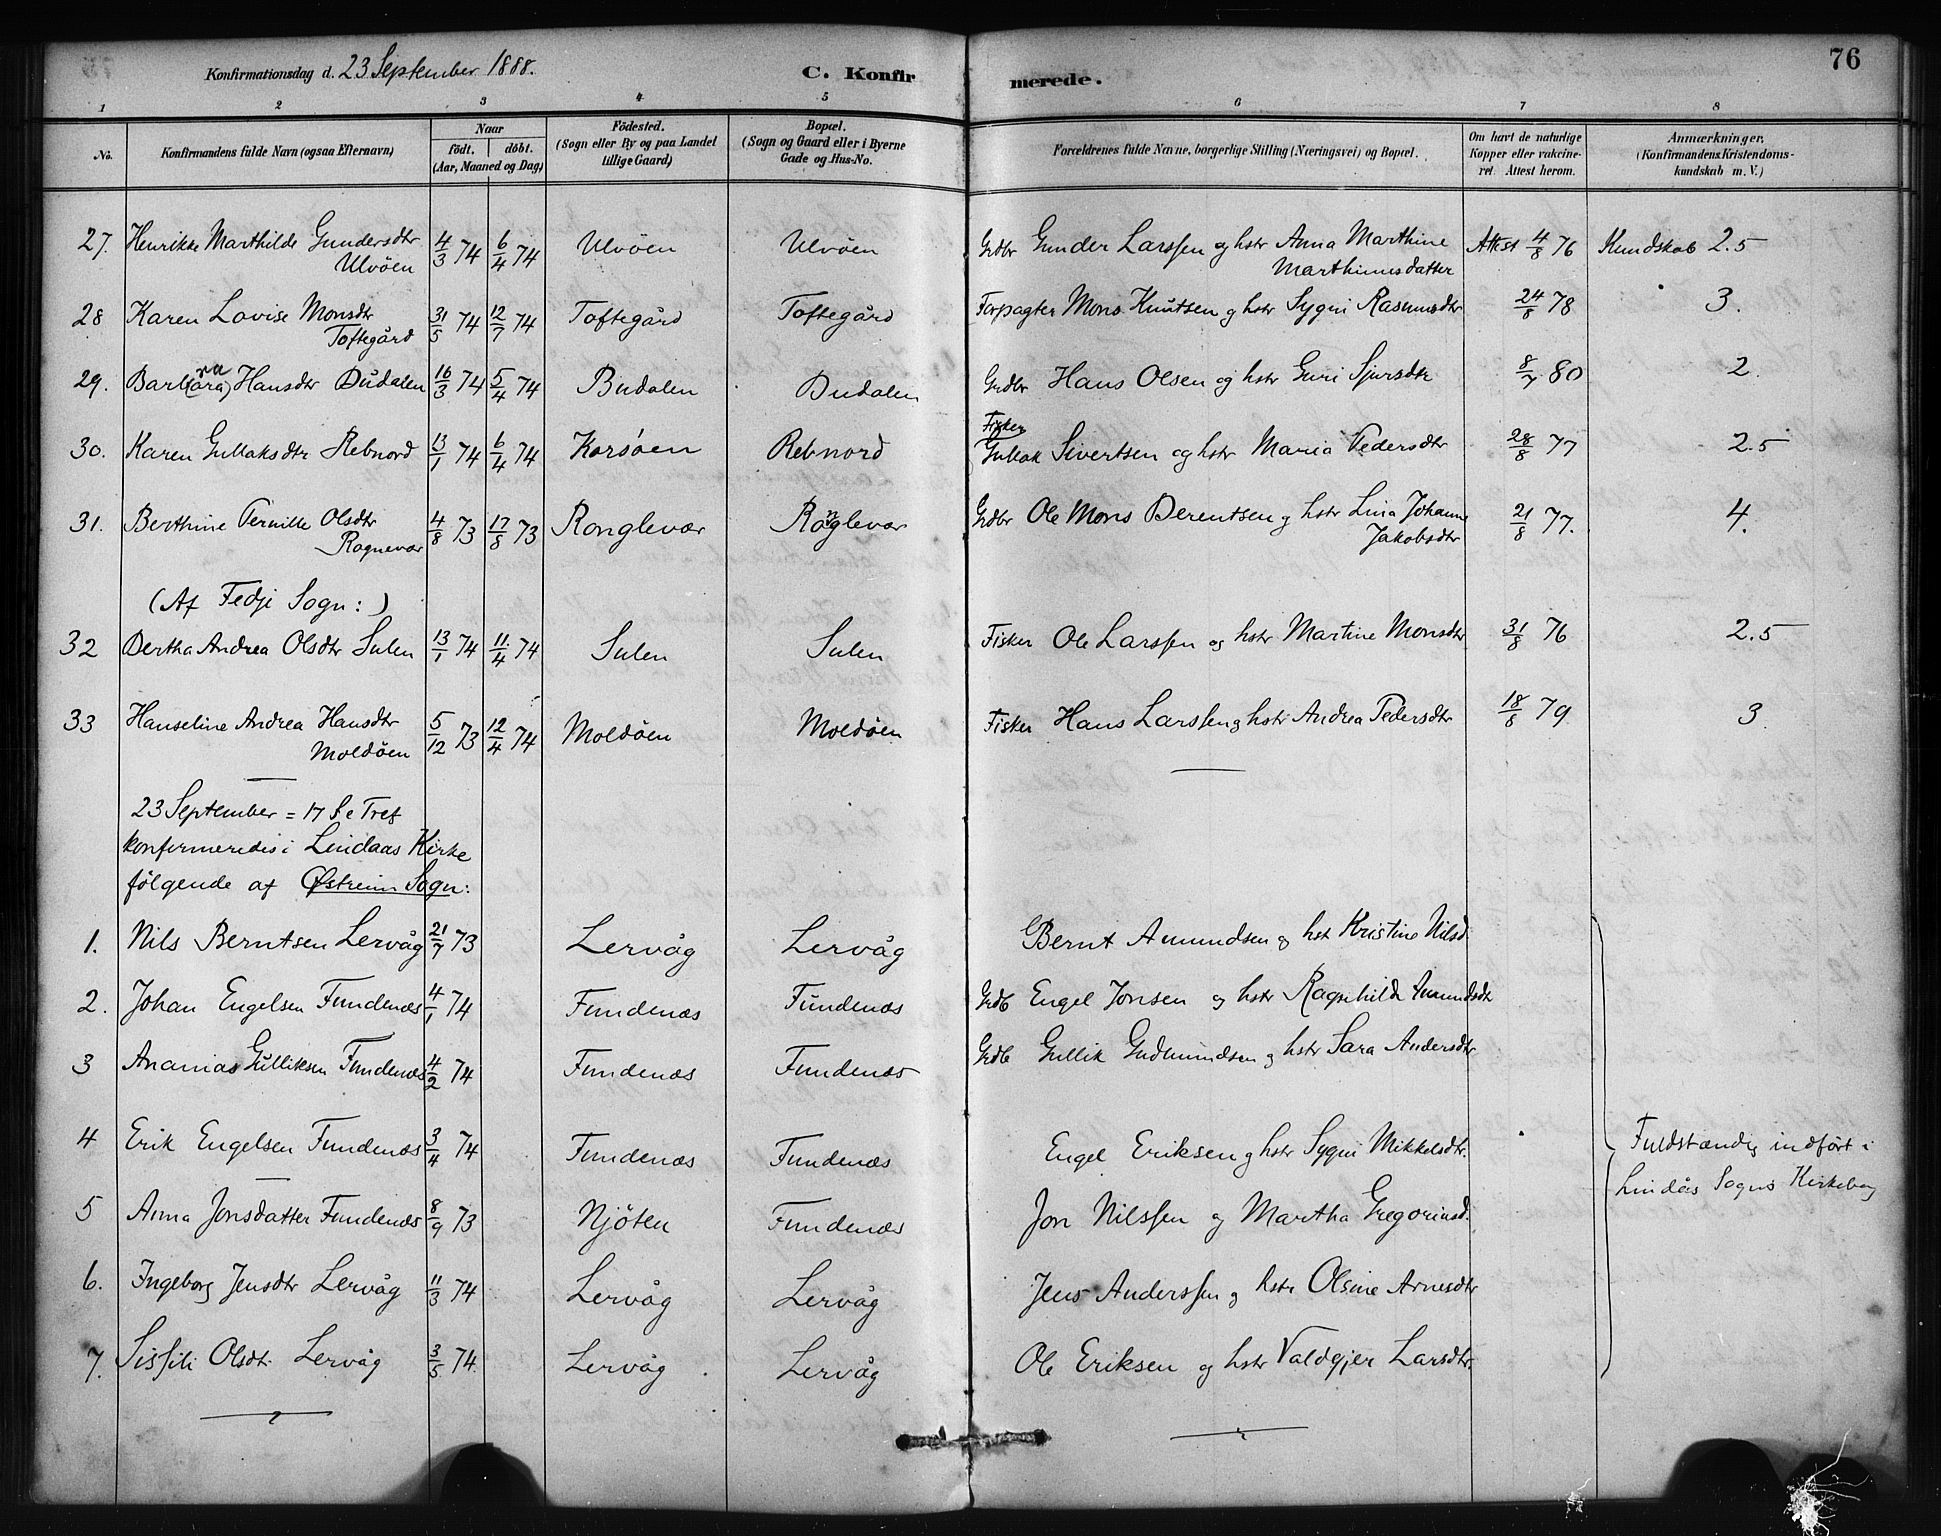 76
Konfirmationsdag d. 23 September 1888.
C. Konfirmerede.
1 2 3 4 5 6 7 8
No.
Konfirmandens fulde Navn (ogsaa Efternavn)
Naar
født. døbt.
(Aar, Maaned og Dag)
Fødested.
(Sogn eller By og paa Landet
tillige Gaard)
Bopæl.
(Sogn og Gaard eller i Byerne
Gade og Hus-No.
Forældrenes fulde Navne, borgerlige Stilling (Næringsvei) og Bopæl.
Om havt de naturlige
Kopper eller vakcine-
ret. Attest herom.
Anmærkninger,
(Konfirmandens Kristendoms-
kundskab m. V.)
27. Henrikke Marthilde Gundersdtr 4/3 74 6/4 74 Ulvöen Ulvöen Grdbr Gunder Larssen og hstr Anna Marthine Attest 4/8 76 Kundskab 2.5
Ulvöen Marthinusdatter
28 Karen Lovise Monsdtr 31/5 74 12/7 74 Toftegård Toftegård Forpagter Mons Knutsen og hstr Sygni Rasmusdtr 24/8 78 3.
Toftegård
29. Barbara Hansdtr Dudalen 16/3 74 5/4 74 Budalen Dudalen Grdbr Hans Olsen og hstr Guri Sjursdtr 8/7 80 2
Fisker
30. Karen Gullaksdtr Rebnord 13/1 74 6/4 74 Korsöen Rebnord Gullak Sivertsen og hstr Maria Pedersdtr 28/8 77 2.5
31. Berthine Pernille Olsdtr 4/8 73 17/8 73 Ronglevær Ronglevær Grdbr Ole Mons Berentsen og hstr Lina Johanne 21/8 77. 4.
Rognevær Jakobsdtr
(Af Fedje Sogn:)
32 Bertha Andrea Olsdtr Sulen 13/1 74 11/4 74 Sulen Sulen Fisker Ole Larssen og hstr Martine Monsdtr 31/8 76 2.5
33 Hanseline Andrea Hansdtr 5/12 73 12/4 74 Moldöen Moldöen Fisker Hans Larssen og hstr Andrea Pedersdtr 18/8 79 3
Moldöen
23 September = 17 S e Tref
konfirmeredes i Lindaas Kirke
fölgende af Østreim Sogn:
1. Nils Berntsen Lervåg 21/7 73 Lervåg Lervåg Bernt Amundsen og hst Kristine Nilsd.
2. Johan Engelsen Fundenæs 4/1 74 Fundenæs Fundenæs Grdb Engel Jonsen og hstr Ragnhilde Amundsdt
3 Ananias Gulliksen Fundenæs 4/2 74 Fundenæs Fundenæs Grdb Gullik Gudmundsen og hstr Sara Andersdtr
4 Erik Engelsen Fundenæs 3/4 74 Fundenæs Fundenæs Engel Eriksen og hstr Sygni Mikkelsdtr. Fuldstændig indfört i
Lindås Sogns Kirkebog
5 Anna Jonsdatter Fundenæs 8/9 73 Njöten Fundenæs Jon Nilssen og Martha Gregoriusd.
6. Ingeborg Jensdtr Lervåg 11/3 74 Lervåg Lervåg Jens Anderssen og hstr Olsine Arnesdtr
7. Sissili Olsdtr Lervåg 3/5 74 Lervåg Lervåg Ole Eriksen og hstr Valdgjer Larsdtr.